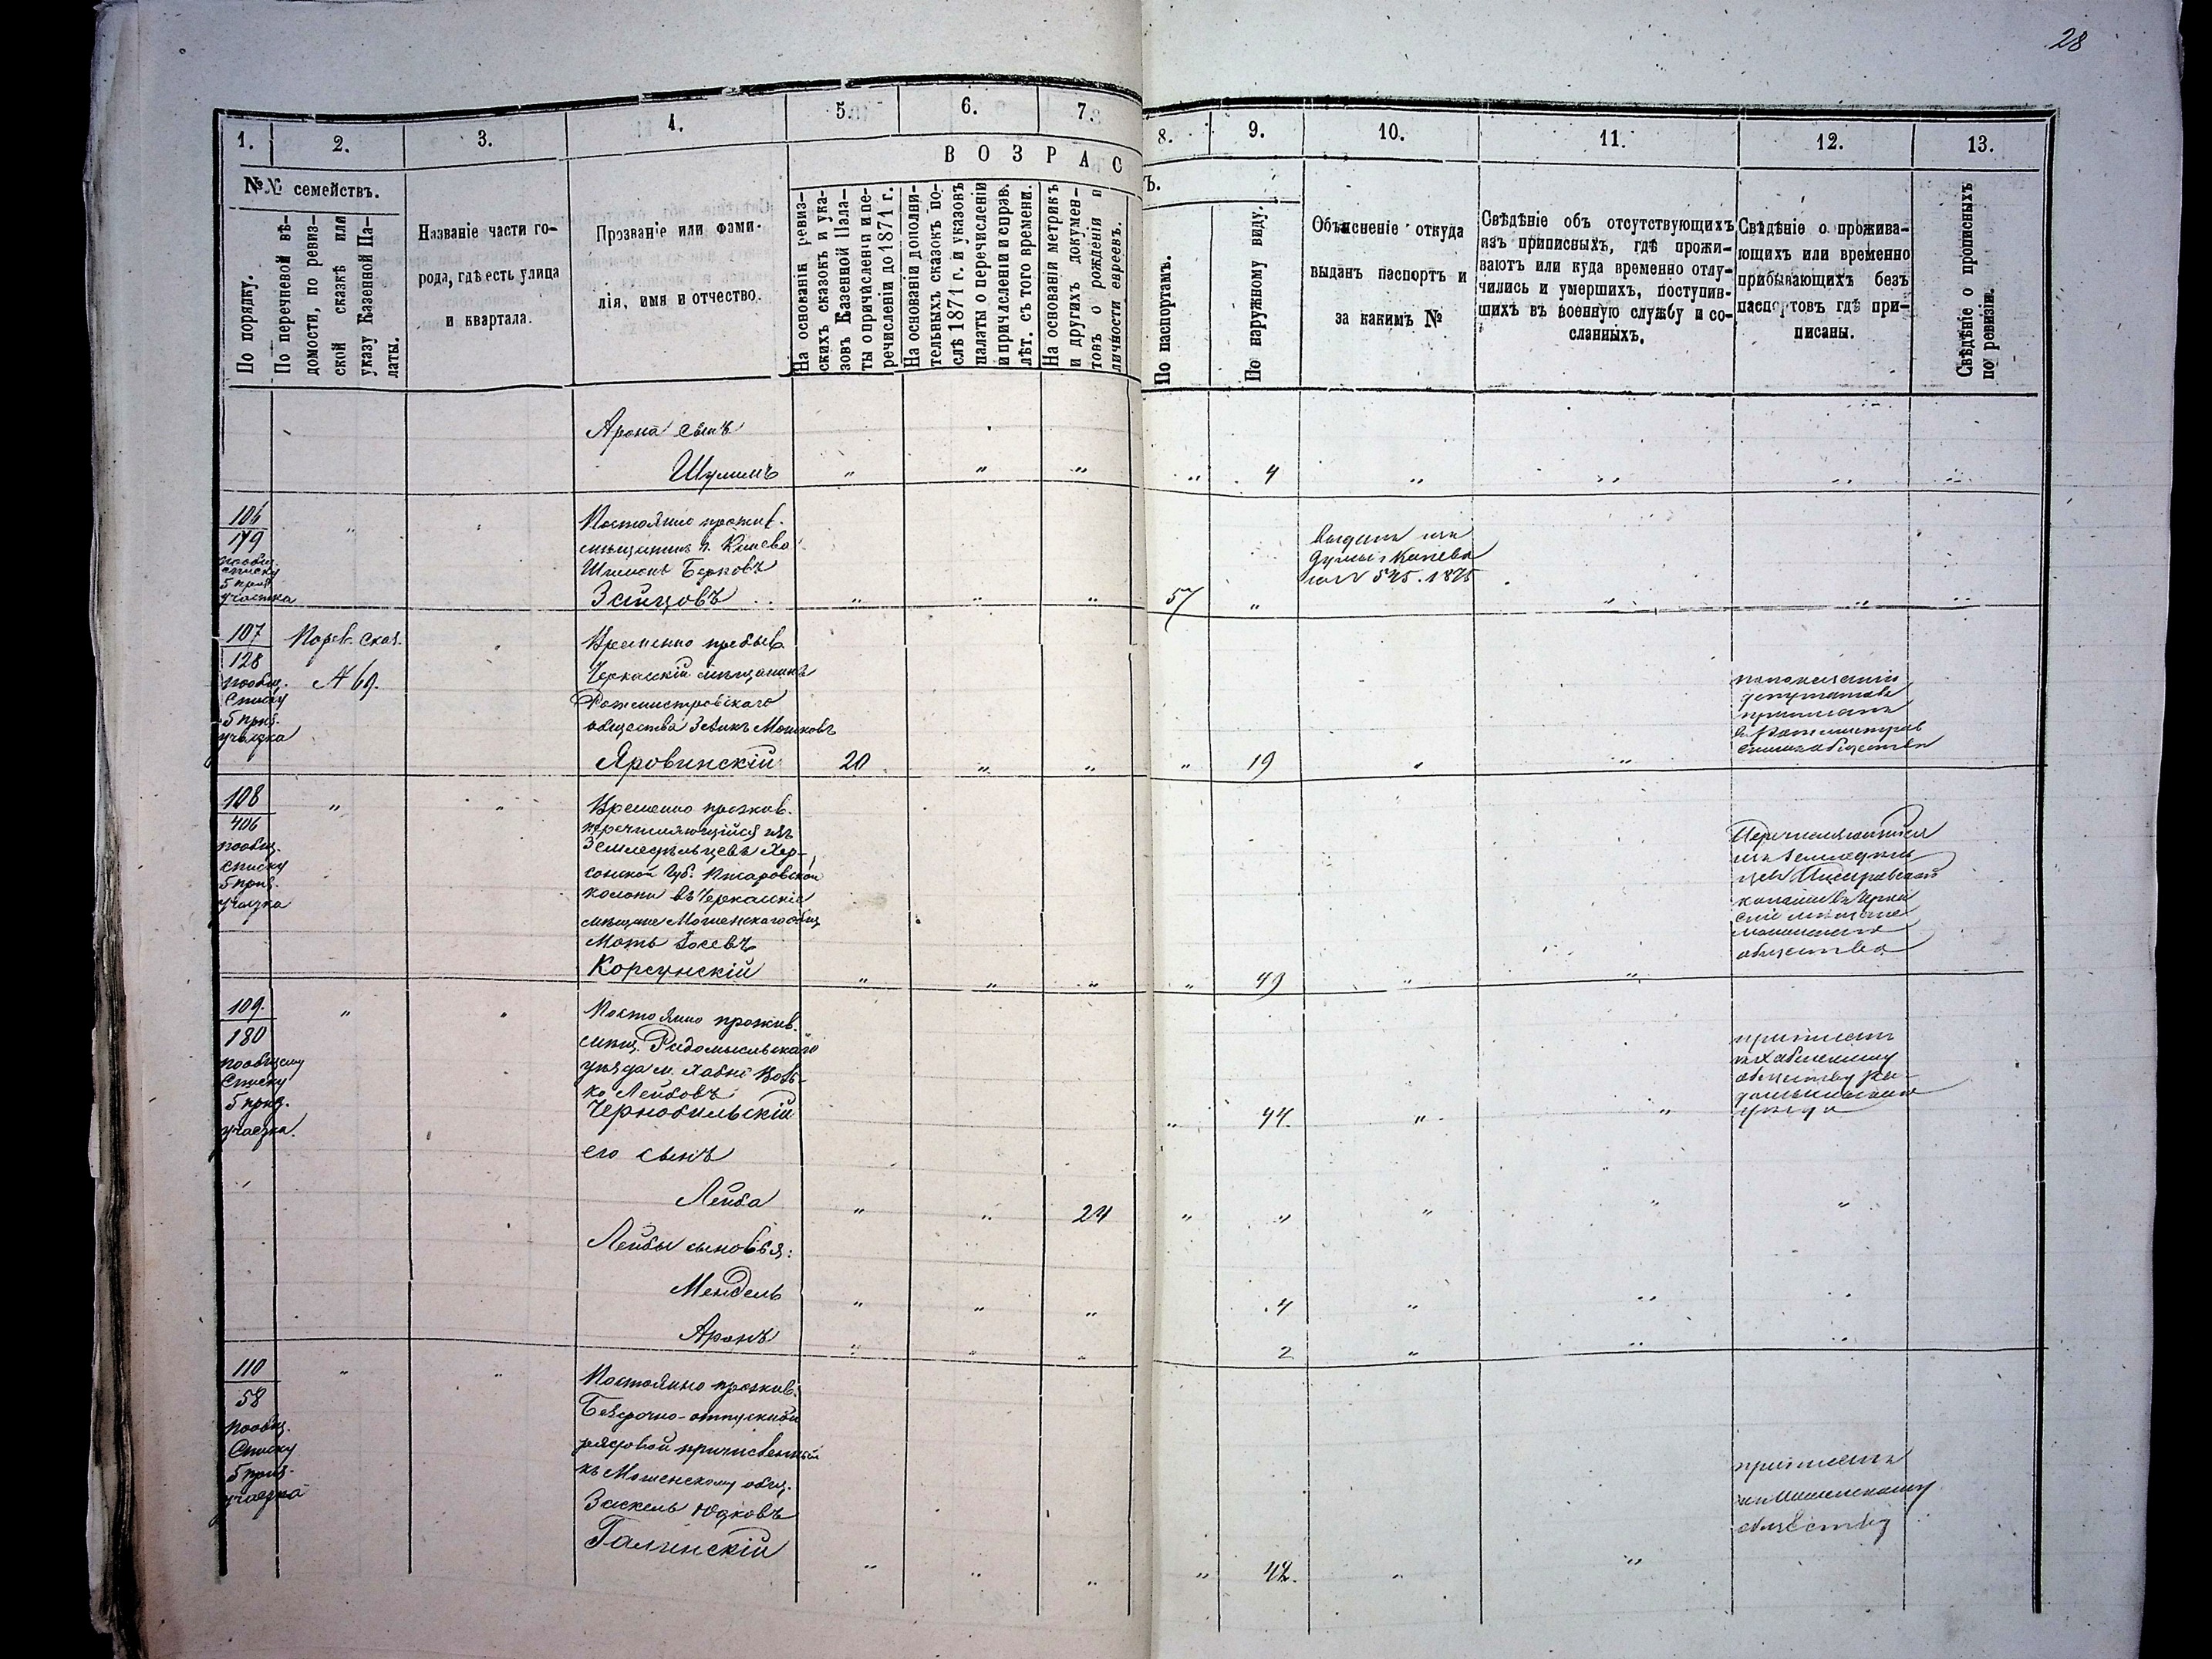 28
1.
2.
3.
4.
5.
6.
7.
8.
9.
10.
11.
12.
13.
№№ семействъ.
По порядку.
По перечневой вѣ-
домости, по ревиз-
ской сказкѣ или
указу Казенной Па-
латы.
Названіе части го-
рода, гдѣ есть улица
и квартала.
Прозваніе или фами-
лія, имя и отчество.
ВОЗРАС
Ъ.
На основаніи ревиз-
скихъ сказокъ и ука-
зовъ Казенной Пала-
ты о причисленіи и пе-
речисленіи до 1871 г.
На основаніи дополни-
тельныхъ сказокъ по-
слѣ 1871 г. и указовъ
палаты о перечисленіи
и причисленіи и справ.
лѣт. съ того времени.
На основаніи метрикъ
и другихъ докумен-
товъ о рожденіи и
личности евреевъ.
По паспортамъ.
По наружному виду.
Объясненіе откуда
выданъ паспортъ и
за какимъ №
Свѣдѣніе объ отсутствующихъ
изъ приписныхъ, гдѣ прожи-
ваютъ или куда временно отлу-
чились и умершихъ, поступив-
шихъ въ военную службу и со-
сланныхъ.
Свѣдѣніе о прожива-
ющихъ или временно
прибывающихъ безъ
паспортовъ гдѣ при-
писаны.
Свѣдѣніе о прописныхъ
по ревизіи.
Арона сынъ
Шулимъ " " " " 4 " " " "
106
179
пообщ.
списку
5 приз.
участка
Постоянно прожив.
мѣщанинъ г. Канева
Шимонъ Берковъ
Зайцовъ " " " 57 " " " "
выданъ изъ
Думы г Канева
за № 575. 1875
107
128
пообщ.
списку
5 приз.
участка
Порев. сказ.
№ 69.
Временно пребыв.
Черкасскій мѣщанинъ
Ротмистровскаго
общества Зейликъ Мошковъ
Яровинскій 20 " " " 19 " "
депутатовъ
приписанъ
108
406
пообщ.
списку
5 приз.
участка
Временно прожив.
перечисляющійся изъ
Земледѣльцевъ Хер-
сонской Губ. Инсаровской
колоніи въ Черкасскіе
мѣщане Мошенскаго общ.
Моть Іосевъ
Корсунскій " " " " 49 " "
Перечисляющійся
изъ Земледѣль
колоніи въ Черка
скіе мѣщане
общества
109.
180
пообщему
списку
5 приз.
участка.
Постоянно прожив.
мѣщ. Радомысльскаго
уѣзда м. Хабне Воль-
ко Лейбовъ
Чернобыльскій " 44. " "
приписанъ
къ Хабенскому
обществу Ра-
домысльскаго
уѣзда
его сынъ
Лейба " " 24 " " " " "
Лейбы сыновья:
Мендель " " " 4 " " "
Аронъ " " " 2 " " "
110
58
пообщ.
списку
5 приз.
участка
Постоянно прожив.
Безсрочно-отпускной
рядовой причисленный
къ Мошенскому общ.
Заскель Юдковъ
Галинскій " " " " 42. " "
приписанъ
къ Мошенскому
обществу